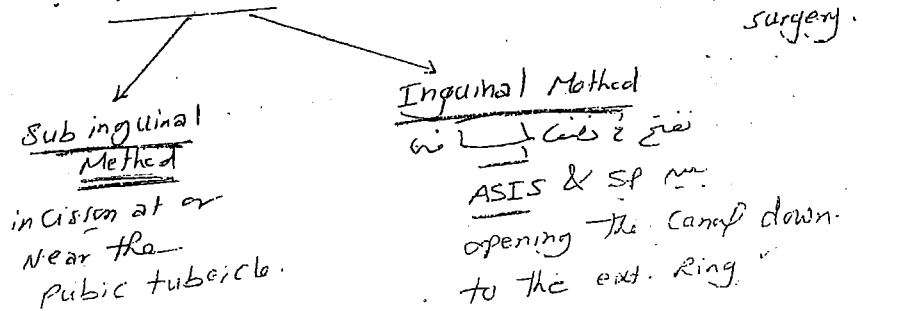 surgery.
Sub inguinal
Method
incission at or
Near the
Pubic tubercle.
Inguinal Method
نفتح في نصف المسافة
بين ASIS & SP
opening the Canal down
to the ext. Ring